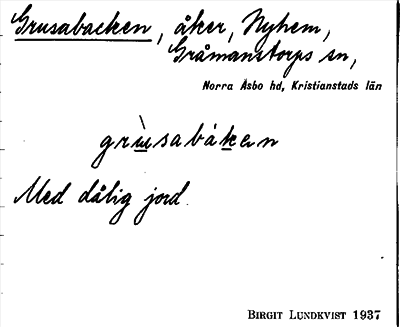 Grusabacken, åker, Nyhem,
Gråmanstorps sn,
Norra Åsbo hd, Kristianstads län
grùsabáken
Med dålig jord.
BIRGIT LUNDKVIST 1937